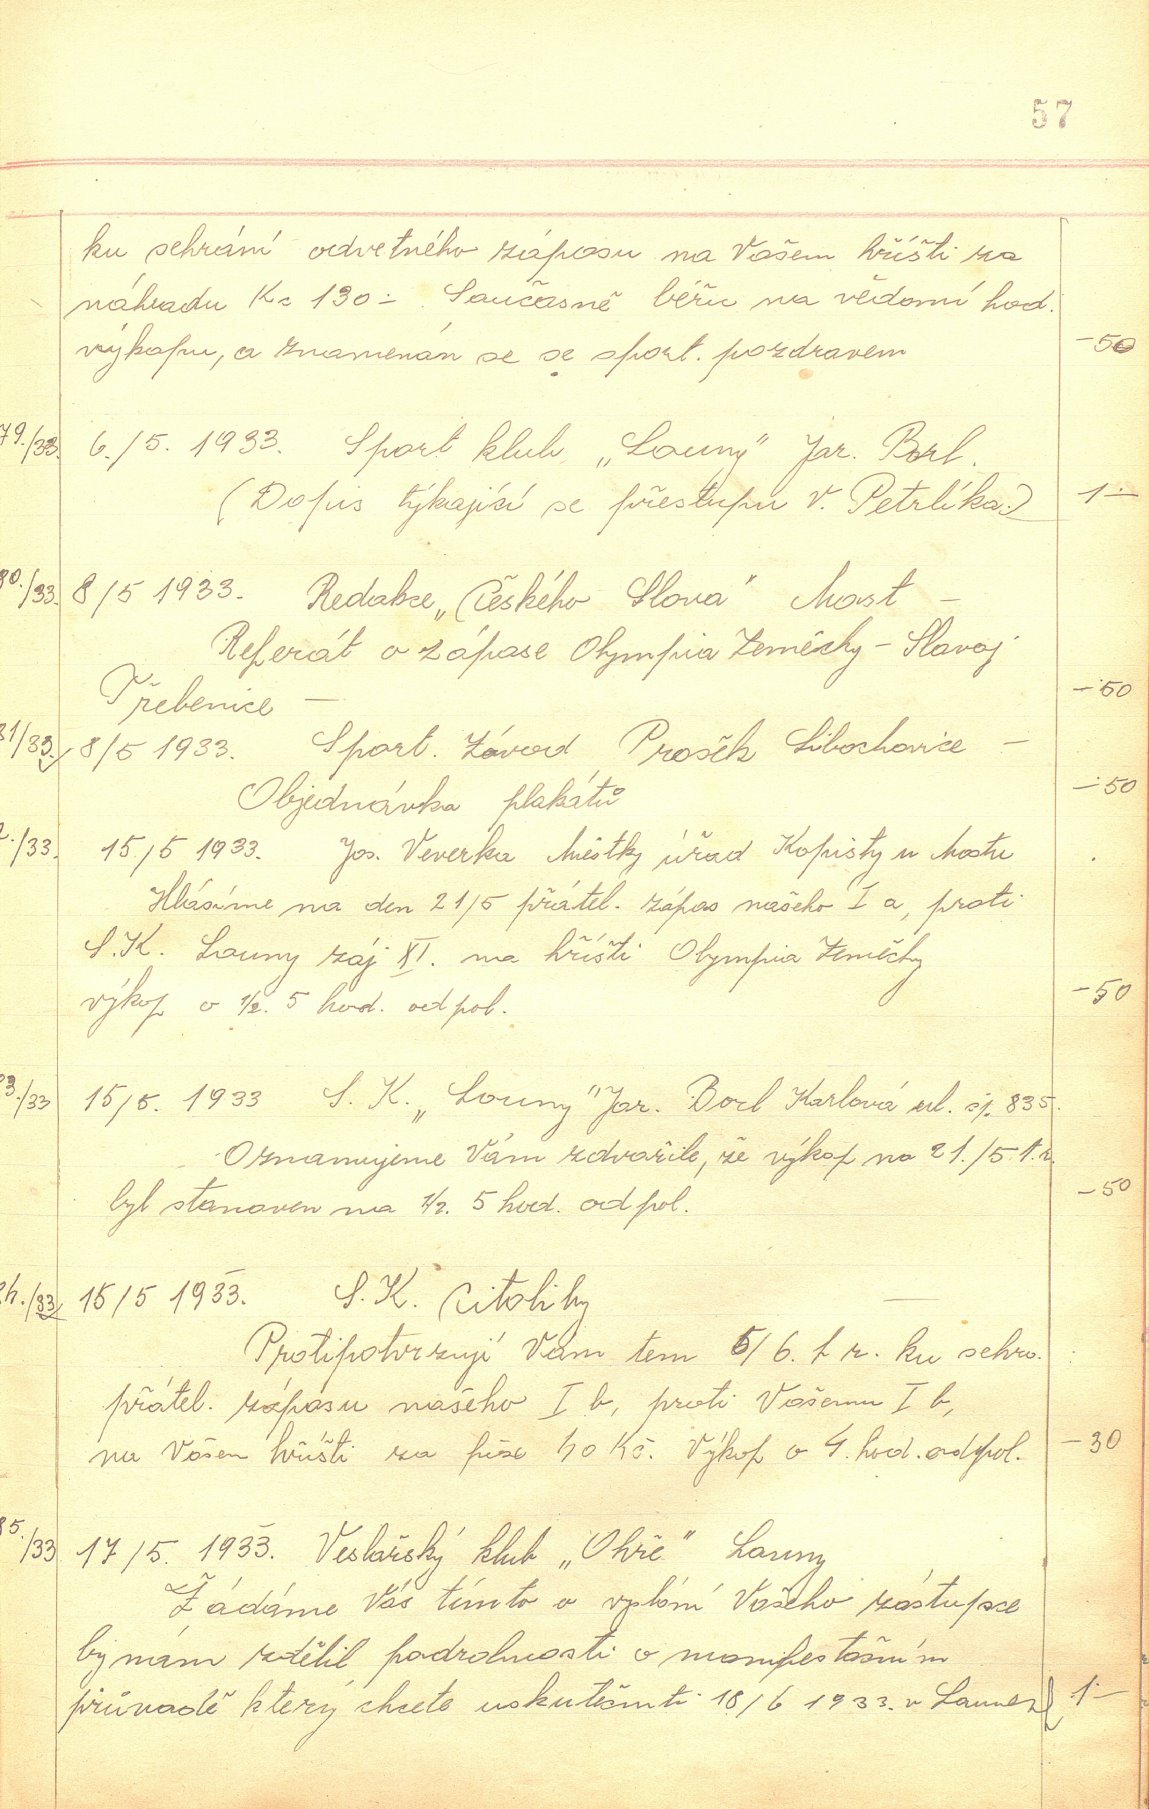 57
ku sehrání odvetného zápasu na Vašem hřišti za
náhradu Kč 130.– Současně béřu na vědomí hod.
výkopu, a znamenán se se sport. pozdravem –50
79./33. 6./5. 1933. Sport klub „Louny" Jar. Borl.
(Dopis týkající se přestupu V. Petrlíka.) 1.–
80./33. 8/5 1933. Redakce „Českého Slova" Most –
Referát o zápase Olympia Zeměchy – Slavoj
Třebenice – –50
81/33. 8/5 1933. Sport. Závod Prošek Libochovice –
Objednávka plakátů –50
2./33. 15/5 1933. Jos. Veverka Městký úřad Kopisty u Mostu
Hlásíme na den 21/5 přátel. zápas našeho I a, proti
S.K. Louny záj XI. na hřišti Olympia Zeměchy
výkop o ½. 5 hod. odpol. –50
83./33 15/5. 1933 S. K. „Louny" Jar. Borl Karlová ul. čp. 835.
Oznamujeme Vám zdvořile, že výkop na 21./5. t.r.
byl stanoven na ½. 5 hod. odpol. –50
84./33 15/5 1933. S.K. Citoliby
Protipotvrzují Vám tem 5/6. t r. ku sehra.
přátel. zápasu našeho I b, proti Vašemu I b,
na Všem hřišti za 40 Kč. Výkop o 4. hod. odpol. –30
85./33 17/5. 1933. Veslařský klub „Ohře" Louny
Žádáme Vás tímto o vyslání Vašeho zástupce
by nám sdělil podrobnosti o manifestačním
průvodě který chcete uskutečniti 18/6 1933. v Lounech 1.–